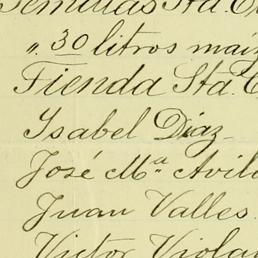 Semillas Sta. C
" 30 litros maíz
Tienda Sta. C
Ysabel Díaz
José Ma. Avila
Juan Valles.
Victor Violan